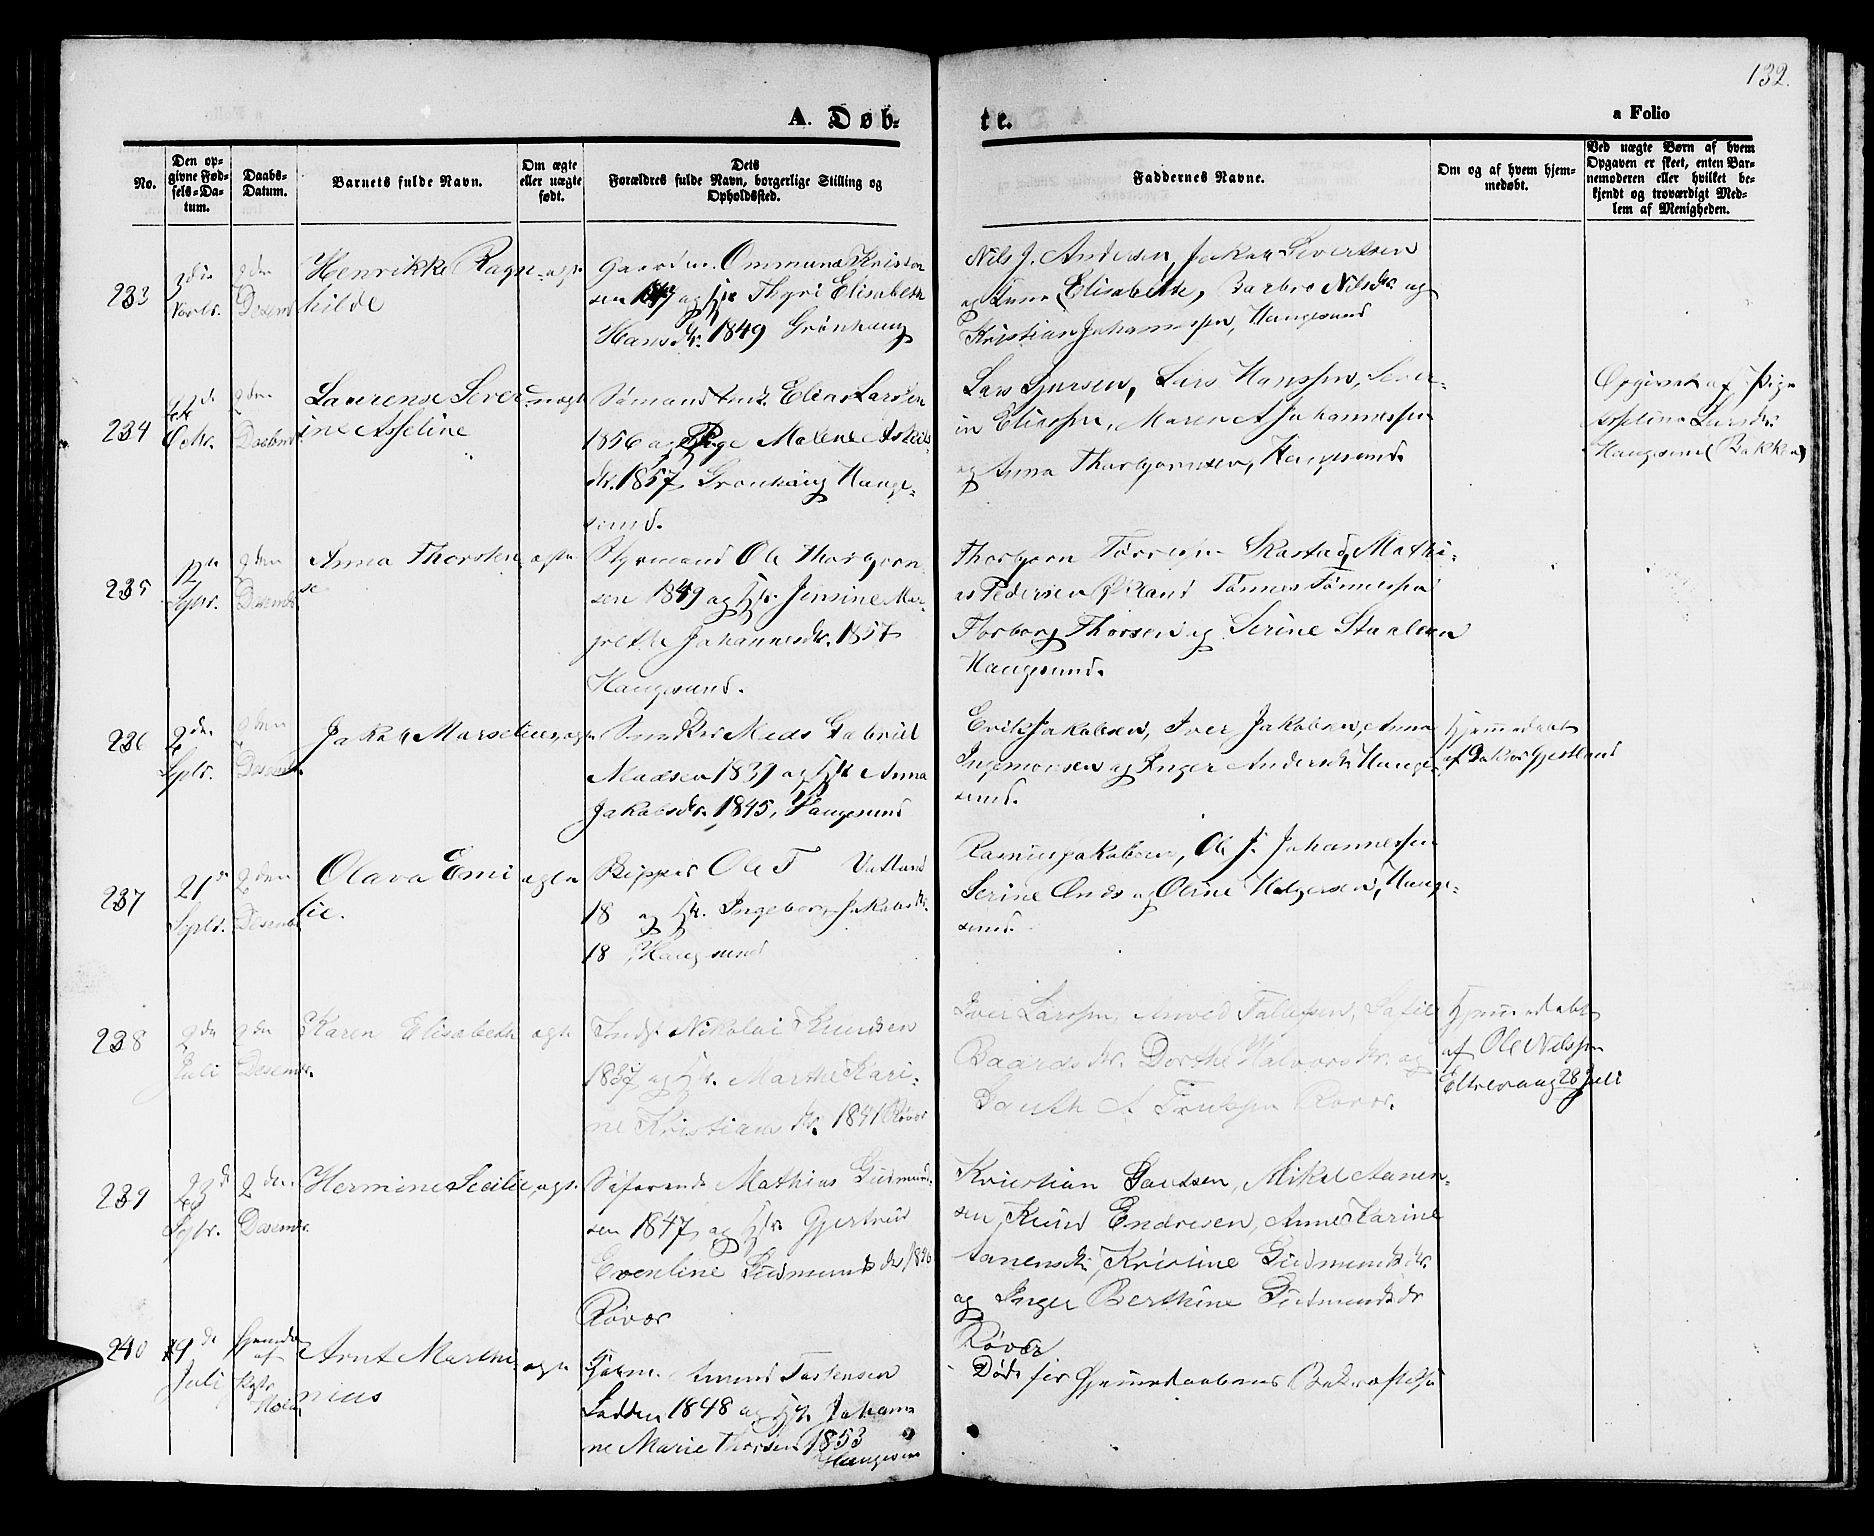 132.
A. Døb-
te.
a Folio
No.
Den op-
givne Fød-
sels-Da-
tum.
Daabs-
Datum.
Barnets fulde Navn.
Om ægte
eller uægte
født.
Dets
Forældres fulde Navn, borgerlige Stilling og
Opholdssted.
Faddernes Navne.
Om og af hvem hjem-
medøbt.
Ved uægte Børn af hvem
Opgaven er skeet, enten Bar-
nemoderen eller hvilket be-
kjendt og troværdigt Med-
lem af Menigheden.
233
Novbr.
2den
Desembr
Henrikke Ragn-
hilde
ægte
Gaardm. Ommund Kristen
sen 1847 og Hr Thyri Elisabeth
Hansdtr. 1849 Grønhaug
Nils J. Andersen, Jakob Sivertsen
og Anna Elisabeth, Barbro Nilsdtr. og
Kristian Johannessen, Haugesund
234
Octbr.
2den
Desembr
Laurense Sever-
ine Asseline
uægte
Sømand Enk. Elias Larsen
1856 og Pige Malene Askilds
dtr. 1857, Grønhaug Hauge-
sund.
Lars Sjursen, Lars Hanssen, Sever-
in Eliassen, Maren A Johannessen
og Anna Thorbjørnsen, Haugesund.
Opgivet af Pige
Asseline Larsdtr.
Haugesund (Bakken)
235
12te
Sptbr.
2den
Desembr
Anna Thorsten-
se
ægte
Styrmand Ole Thorbjørn-
sen 1849 og Hr. Jensine Mar-
grethe Johannesdtr. 1857
Haugesund.
Thorbjørn Skastad, Mathi-
as Pedersen Østrand Tønnes Tønnessen
Thorborg Thorsen og Serine Staalesen
Haugesund.
236
2den
Sptbr.
2den
Desembr
Jakob Marselius
ægte
Snedker Mads Gabriel
Madsen 1839 og Hr Anna
Jakobsdtr. 1845, Haugesund
Erik Jakobsen, Iver Jakobsen, Anna
Ingemonsen og Inger Andersdtr Hauge-
sund.
Hjemmedøbt
af Doktor Gjestland
237
21de
Sptbr.
2den
Desembr
Olava Emi
lie.
ægte
Skipper Ole T Vatland
18 og Hr. Ingeborg Jakobsdtr.
18 , Haugesund
Rasmus Jakobsen, Ole J. Johannessen
Serine Enes og Olene Helgesen, Hauge-
sund.
238
2den
Juli
2den
Desembr.
Karen Elisabeth
ægte
Inds. Nikolai Knudsen
1837 og Hr. Marthe Kari-
ne Kristiansdtr. 1841 Røvær
Iver Larssen, Amund Tollefsen,
Baardsdtr. Dorthe Halvorsdtr. og
Røvær.
Hjemmedøbt
af Ole Nilssen
28 Juli
239
23de
Sptbr.
2den
Desembr.
Hermine Secilie
ægte
Søfarende Mathias Gudmund-
sen 1847 og Hr. Gjertrud
Eveline Gudmundsdtr 1846
Røvær
Kristian Davidsen, Mikal Aanen-
sen, Knud Endresen, Anne Karine
Aanensdtr, Kristine Gudmundsdtr.
og Inger Berthine Gudmundsdtr
Røvær
240
19de
Juli
Hjemdøbt
af
Arnt Marthi-
nius
ægte
Amund Torstensen
Ladden 1848 og Hr. Johan-
ne Marie Thorsen 1853
Haugesund
Døde før Hjemmedaabens Bekræftelse